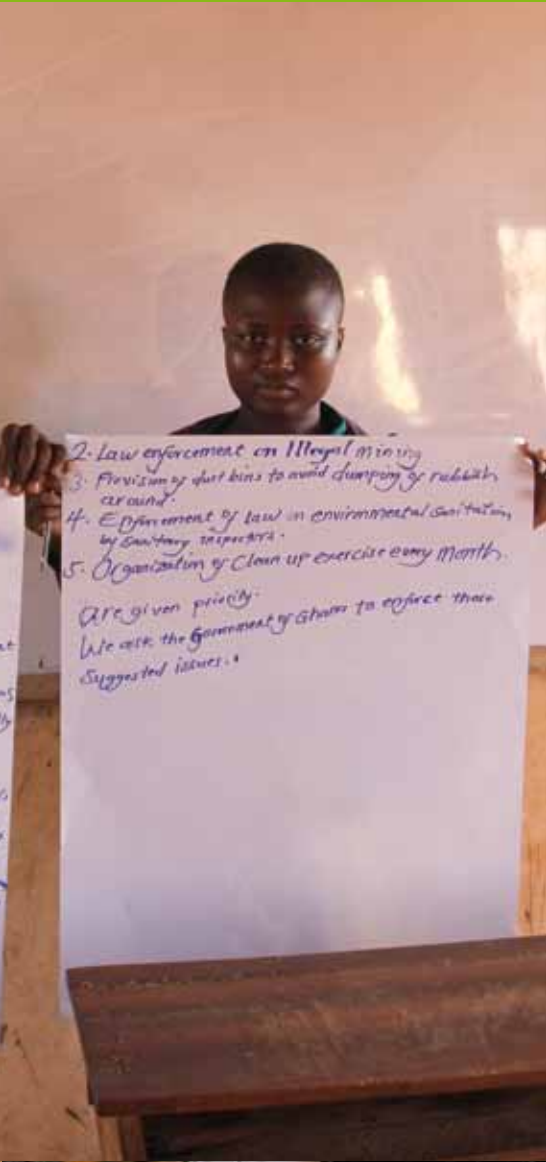 2. Law enforcement on Illegal mining
3. Provision of dust bins to avoid dumping of rubbish
around.
4. Enforcement of law in environmental sanitation
by sanitary inspectors.
5. Organization of Clean up exercise every month.
are given priority.
We ask the Government of Ghana to enforce these
Suggested issues.